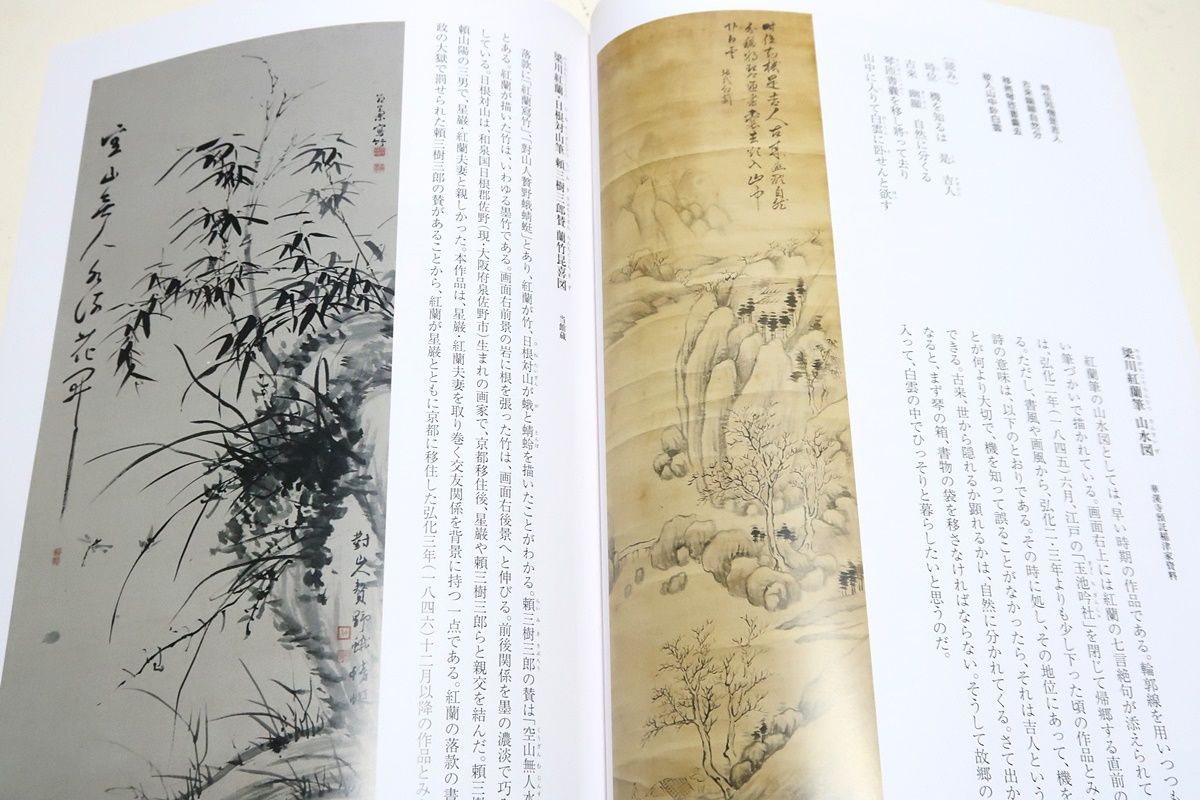 時位知機是吉人
古來幽顯自然分
移將琴匣書囊去
欲入山中臥白雲
〈読み〉
時位 機を知るは 是 吉人
古来 幽顕 自然に分くる
琴匣書嚢を移し将って去り
山中に入りて白雲に臥せんと欲す
梁川紅蘭筆 山水図 華渓寺預託稲津家資料
紅蘭筆の山水図としては、早い時期の作品である。輪郭線を用いつつも
い筆づかいで描かれている。画面右上には紅蘭の七言絶句が添えられて
は、弘化二年(一八四五)六月、江戸の「玉池吟社」を閉じて帰郷する直前の
る。ただし、書風や画風から、弘化二・三年よりも少し下った頃の作品とみ
詩の意味は、以下のとおりである。その時に処し、その地位にあって、機を
とが何より大切で、機を知って誤ることがなかったら、それは吉人という
できる。古来、世から隠れるか顕れるかは、自然に分かれてくる。さて出か
なると、まず琴の箱、書物の袋を移さなければならない。そうして故郷の
入って、白雲の中でひっそりと暮らしたいと思うのだ。
時位知機是吉人古来幽顕自然
分移将琴匣書嚢去欲入山中
臥白雲
梁川紅蘭・日根対山筆 頼三樹三郎賛 蘭竹昆喜図 当館蔵
落款に「紅蘭寫竹」、「對山人贅野蛾蜻蜓」とあり、紅蘭が竹、日根対山が蛾と蜻蛉を描いたことがわかる。頼三樹三郎の賛は「空山無人水
とある。紅蘭が描いた竹は、いわゆる墨竹である。画面右前景の岩に根を張った竹は、画面右後景へと伸びる。前後関係を墨の濃淡で巧み
している。日根対山は、和泉国日根郡佐野(現・大阪府泉佐野市)生まれの画家で、京都移住後、星巌や頼三樹三郎らと親交を結んだ。頼三樹
頼山陽の三男で、星巌・紅蘭夫妻と親しかった。本作品は、星巌・紅蘭夫妻を取り巻く交友関係を背景に持つ一点である。紅蘭の落款の書
政の大獄で罰せられた頼三樹三郎の賛があることから、紅蘭が星巌とともに京都に移住した弘化三年(一八四六)十二月以降の作品とみ
紅蘭寫竹
空山無人水流花開
對山人贅野蛾蜻蜓